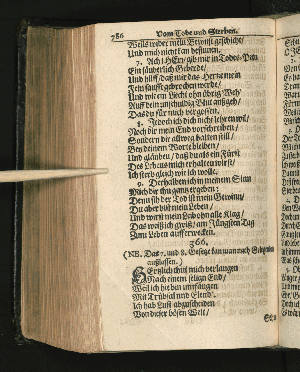 786 Vom Tode und Sterben.
Weils wider mein Bewust geschicht/
Und mich nicht kan besinnen.
7. Ach HErr gib mir in Todes-Pein
Ein säuberlich Geberde/
Und hilff daß mir das Hertze mein
Fein sanfft gebrochen werde/
Und wie ein Liecht ohn übrig Weh
Auff dein unschuldig Blut außgeh/
Das du für mich vergossen.
8. Jedoch ich dich nicht lehren wil/
Noch dir mein End vorschreiben/
Sondern dir allweg halten still/
Bey deinem Worte bleiben/
Und gläuben/ daß du als ein Fürst
Des Lebens mich erhalten wirst/
Ich sterb gleich wie ich wolle.
9. Derhalben ich in meinem Sinn
Mich dir thu gantz ergeben:
Denn sih der Tod ist mein Gewinn/
Du aber bist mein Leben/
Und wirst mein Leib ohn alle Klag/
Das weiß ich gwiß/ am Jüngsten Tag
Zum Leben aufferwecken.
366.
(NB. Das 7. und 8. Gesetze kan man nach
außlassen.)
HErtzlich thut mich verlangen
Nach einem selgen End/
Weil ich hie bin umfangen
Mit Trübsal und Elend.
Ich hab Lust abzuscheiden
Von dieser bösen Welt/